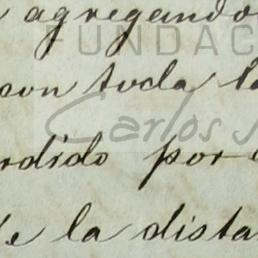 agregando
FUNDAC
con toda la
Carlos
rdido por
de la dista